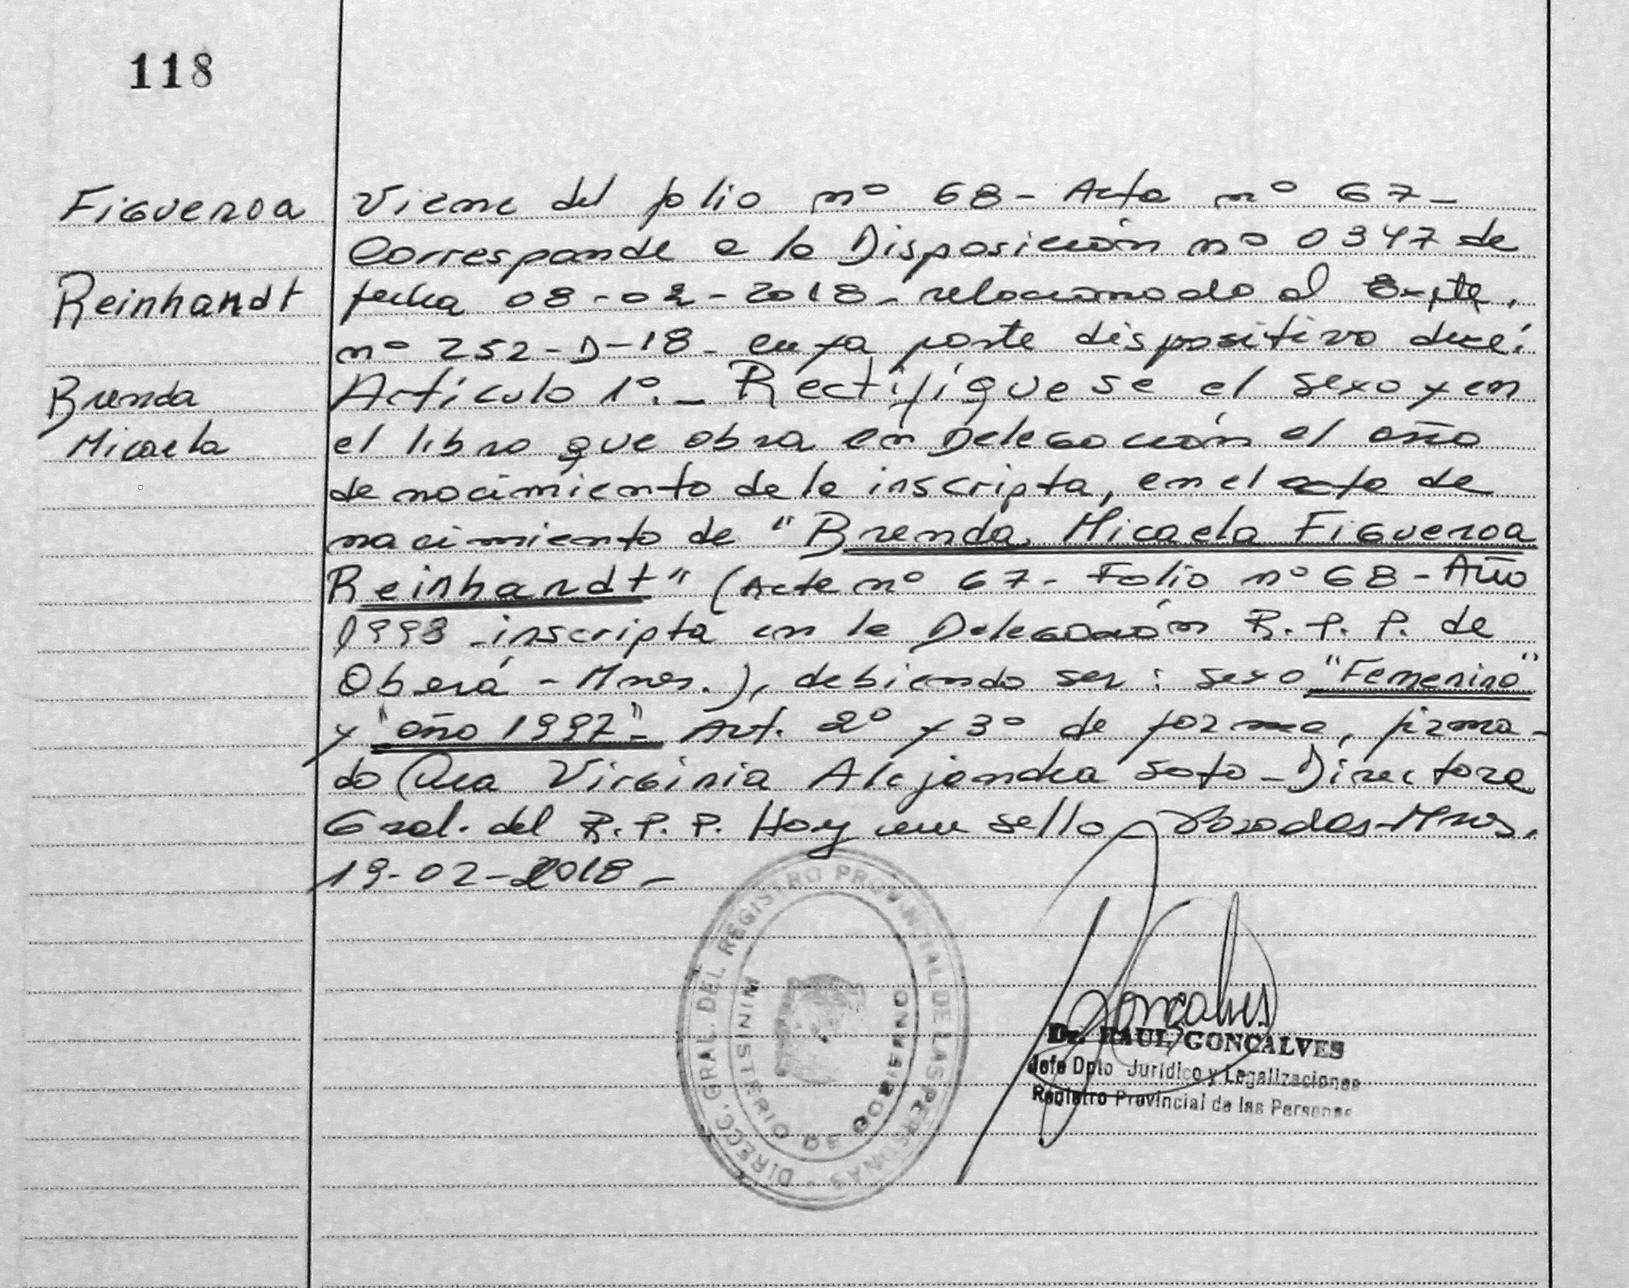 118
Figueroa
Reinhardt
Brenda
Micaela
Viene del folio nº 68 - Acta nº 67 -
Corresponde a la Disposición nº 0347 de
fecha 08-02-2018 - relacionado al Expte.
nº 252-D-18 - cuya parte dispositiva dice:
Artículo 1º. - Rectifíquese el sexo y en
el libro que obra en Delegación el año
de nacimiento de la inscripta, en el acta de
nacimiento de "Brenda Micaela Figueroa
Reinhardt" (Acta nº 67 - Folio nº 68 - Año
1998 - inscripta en la Delegación R.P.P. de
Oberá - Mnes.), debiendo ser: sexo "Femenino"
y "año 1997" - Art. 2º y 3º de forma, firma-
do Dra Virginia Alejandra Soto - Directora
Gral. del R.P.P. Hay un sello - Posadas - Mnes.
19-02-2018 -
DIRECC. GRAL. DEL REGISTRO PROVINCIAL DE LAS PERSONAS
MINISTERIO DE GOBIERNO
Gonçalves
Dr. RAUL GONCALVES
Jefe Dpto Jurídico y Legalizaciones
Registro Provincial de las Personas